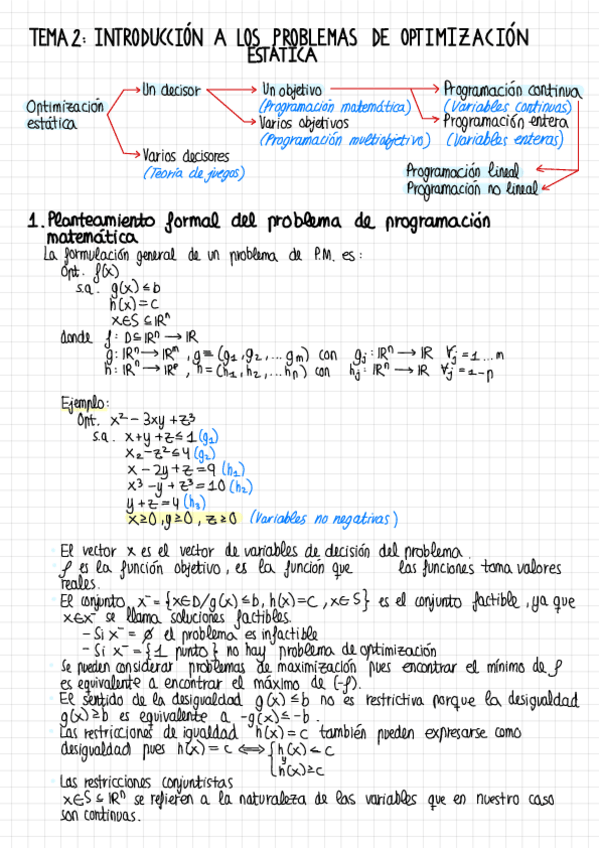 TEMA 2: INTRODUCCIÓN A LOS PROBLEMAS DE OPTIMIZACIÓN
ESTÁTICA
Optimización
estática
Un decisor
Un objetivo
(Programación matemática)
Varios objetivos
(Programación multiobjetivo)
Programación continua
(Variables continuas)
Programación entera
(Variables enteras)
Varios decisores
(Teoría de juegos)
Programación lineal
Programación no lineal
1. Planteamiento formal del problema de programación
matemática
La formulación general de un problema de P.M. es:
Opt. f(x)
s.a. g(x) ≤ b
h(x) = c
x∈S ⊆ IRⁿ
donde f: D⊆IRⁿ → IR
g: IRⁿ → IRᵐ, g = (g₁, g₂, ... gm) con gj: IRⁿ → IR ∀j = 1 ... m
h: IRⁿ → IRᵖ, h = (h₁, h₂, ... hp) con hj: IRⁿ → IR ∀j = 1 - p
Ejemplo:
Opt. x² - 3xy + z³
s.a. x + y + z ≤ 1 (g₁)
x₂ - z² ≤ 4 (g₂)
x - 2y + z = 9 (h₁)
x³ - y + z³ = 10 (h₂)
y + z = 4 (h₃)
x≥0, y≥0, z≥0 (Variables no negativas)
El vector x es el vector de variables de decisión del problema.
f es la función objetivo, es la función que las funciones toma valores
reales.
El conjunto, x⁻ = {x∈D/g(x) ≤ b, h(x) = c, x∈S} es el conjunto factible, ya que
x∈x⁻ se llama soluciones factibles.
- Si x⁻ = ∅ el problema es infactible
- Si x⁻ = {1 punto} no hay problema de optimización
Se pueden considerar problemas de maximización pues encontrar el mínimo de f
es equivalente a encontrar el máximo de (-f).
El sentido de la desigualdad g(x) ≤ b no es restrictiva porque la desigualdad
g(x) ≥ b es equivalente a -g(x) ≤ -b.
Las restricciones de igualdad h(x) = c también pueden expresarse como
desigualdad pues h(x) = c ⟺ { h(x) ≤ c
y
h(x) ≥ c
Las restricciones conjuntistas
x∈S ⊆ IRⁿ se refieren a la naturaleza de las variables que en nuestro caso
son continuas.